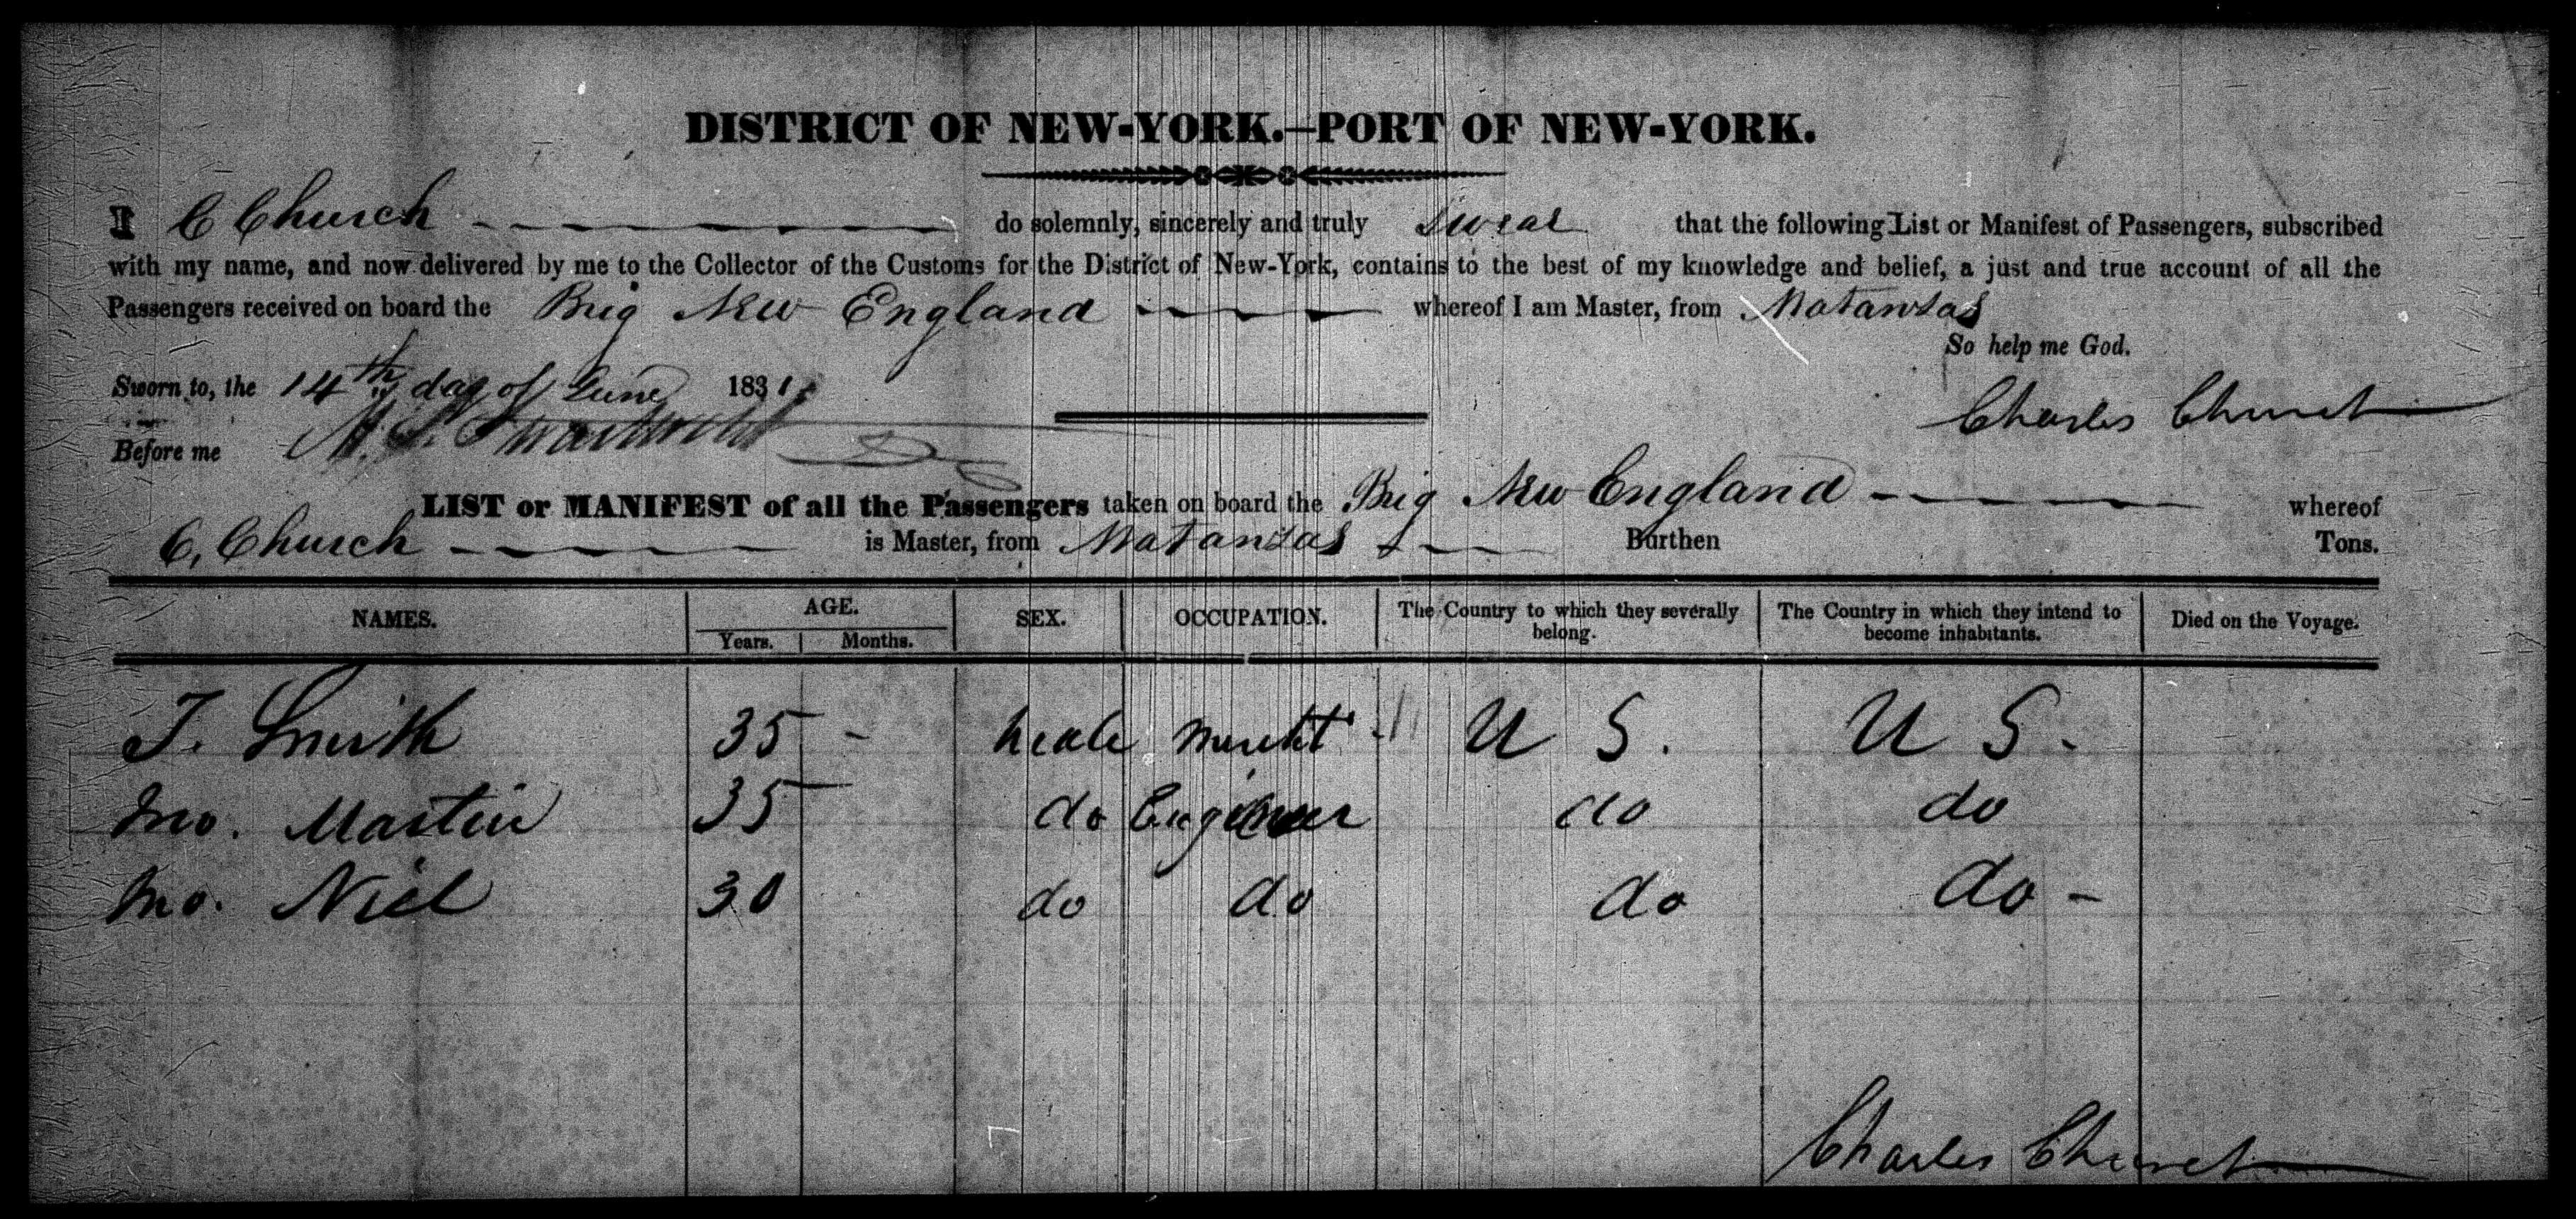 DISTRICT OF NEW-YORK.—PORT OF NEW-YORK.
I C Church do solemnly, sincerely and truly swear that the following List or Manifest of Passengers, subscribed
with my name, and now delivered by me to the Collector of the Customs for the District of New-York, contains to the best of my knowledge and belief, a just and true account of all the
Passengers received on board the Brig New England whereof I am Master, from Matanzas
So help me God.
Sworn to, the 14th day of June 1831.
Charles Church
Before me Swartwout
LIST or MANIFEST of all the Passengers taken on board the Brig New England whereof
C. Church is Master, from Matanzas Burthen Tons.
NAMES. AGE. SEX. OCCUPATION. The Country to which they severally belong. The Country in which they intend to become inhabitants. Died on the Voyage.
Years. Months.
T. Smith 35 - Male Mercht U S. U S.
Jno. Martin 35 do Engineer do do
Jno. Niel 30 do do do do -
Charles Church